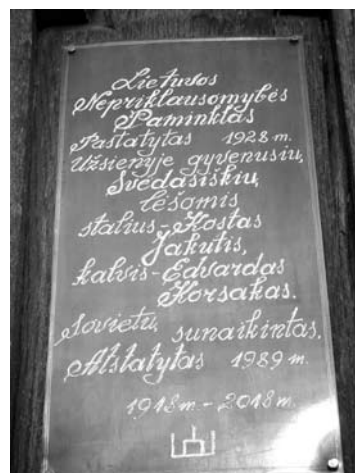 Lietuvos
Nepriklausomybės
Paminklas
Pastatytas 1928 m.
Užsienyje gyvenusių,
Svėdasiškių,
lėšomis
stalius-Kostas
Jakutis,
kalvis-Edvardas
Korsakas.
Sovietų, sunaikintas.
Atstatytas 1989 m.
1918 m. - 2018 m.